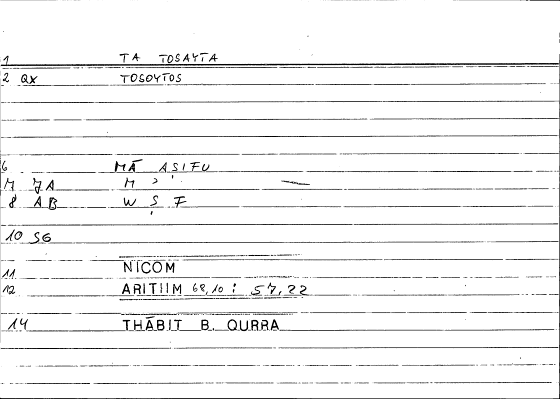 1 TA TOSAYTA
2 QX TOSOYTOS
6 MĀ ASIFU
M JA M
8 AB W S F
10 SG
11 NICOM
12 ARITIIM 68,10 : 57,22
14 THĀBIT B. QURRA